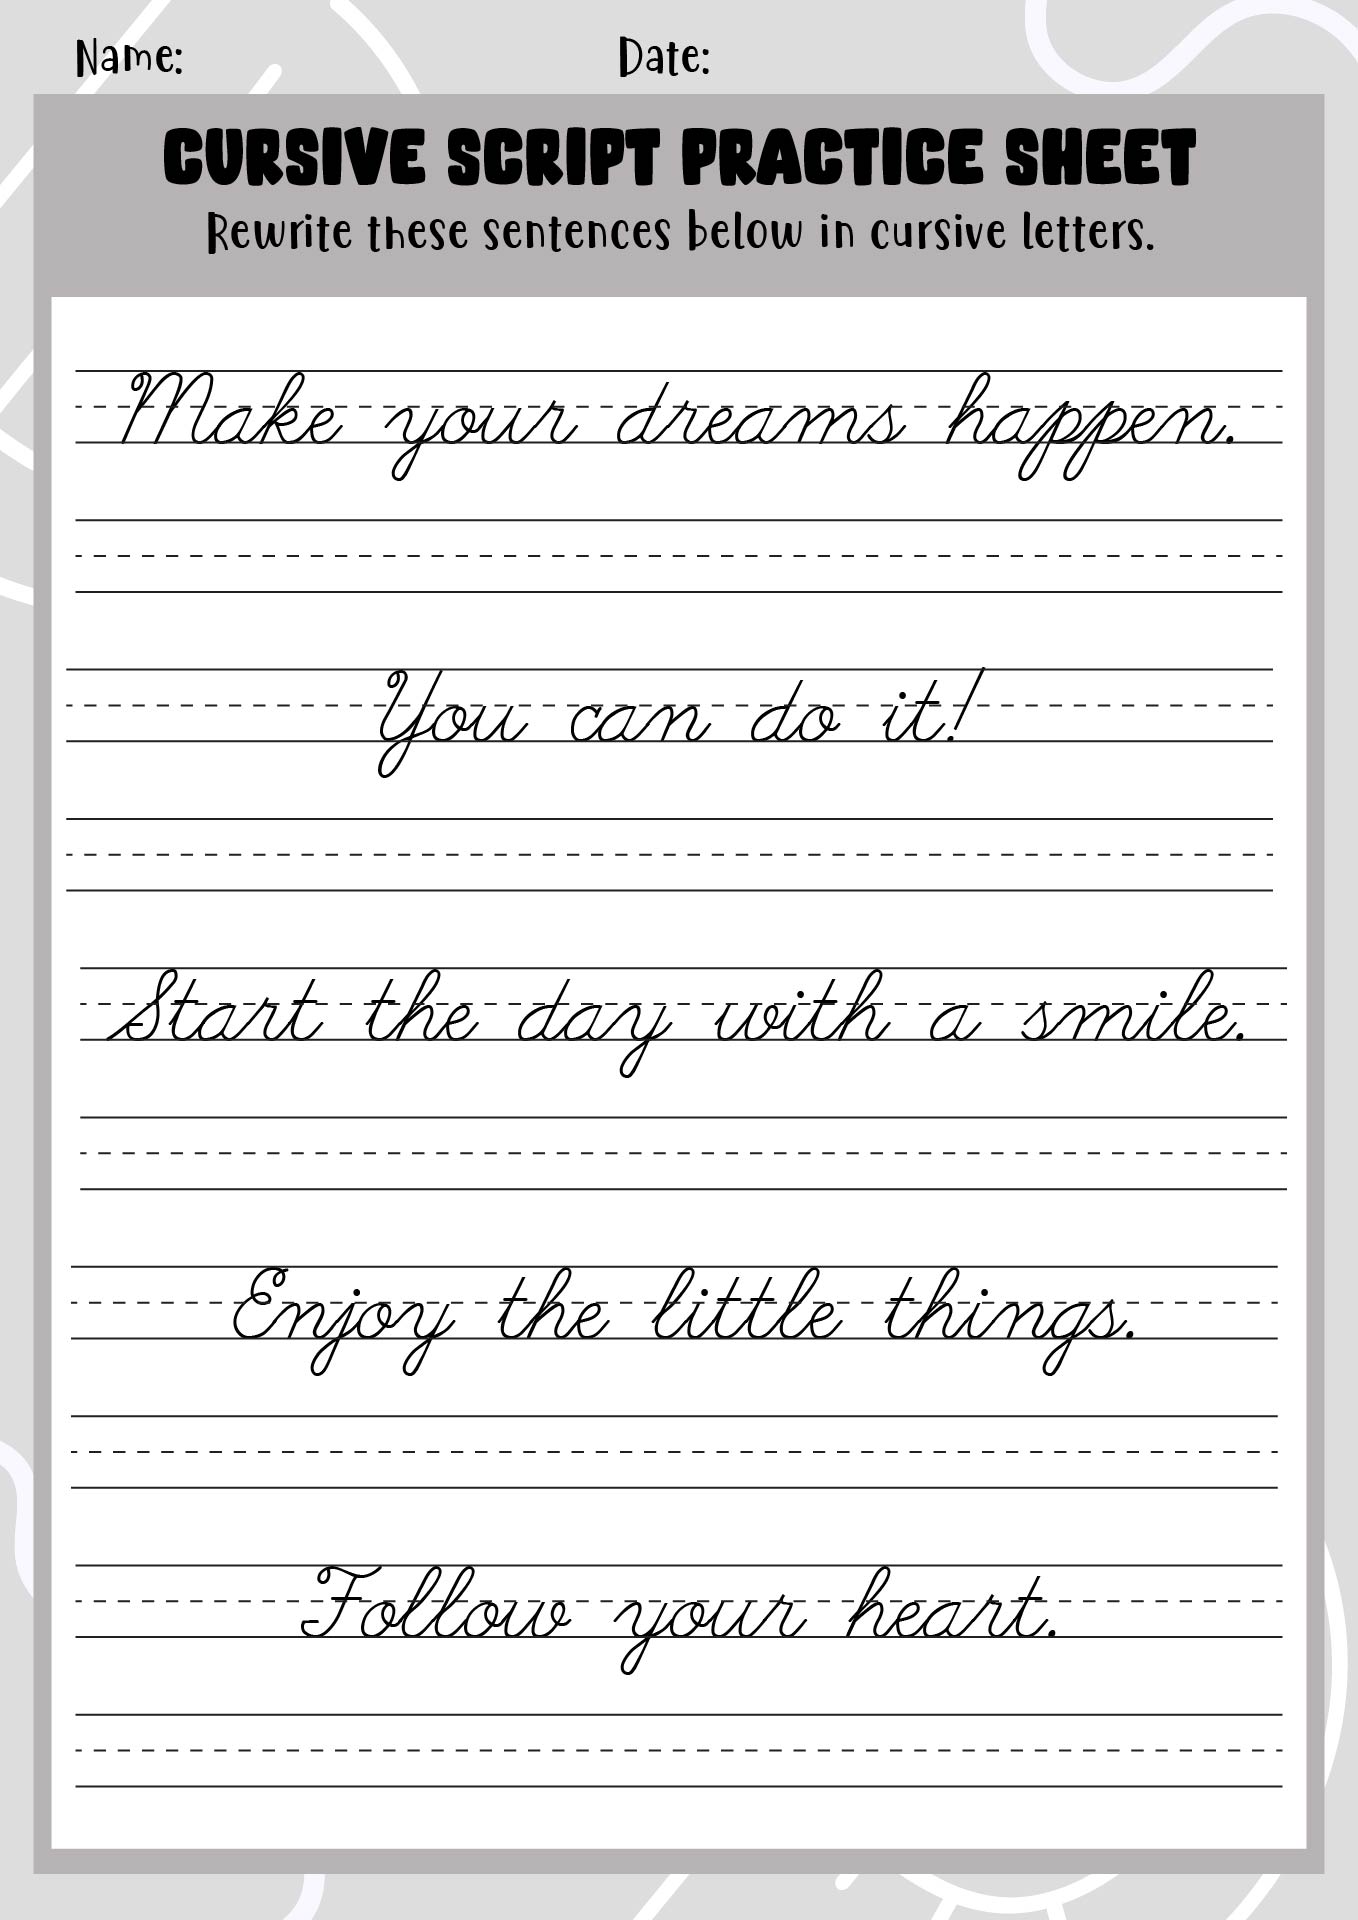 Name: Date:
CURSIVE SCRIPT PRACTICE SHEET
Rewrite these sentences below in cursive letters.
Make your dreams happen.
You can do it!
Start the day with a smile.
Enjoy the little things.
Follow your heart.